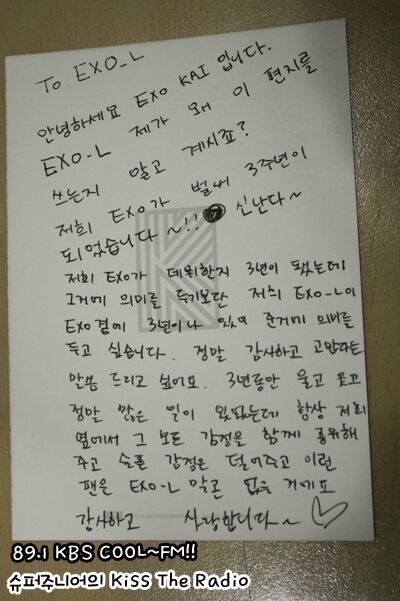 To. EXO_L
안녕하세요 EXO KAI 입니다.
EXO-L 제가 왜 이 편지를
쓰는지 알고 계시죠?
저희 EXO가 벌써 3주년이
되었습니다~!! 신난다~
저희 EXO가 데뷔한지 3년이 됐는데
그거에 의미를 두기보단 저희 EXO-L이
EXO 곁에 3년이나 있어 준거에 의미를
두고 싶습니다. 정말 감사하고 고맙다는
말씀 드리고 싶어요. 3년동안 울고 웃고
정말 많은 일이 있었는데 항상 저희
옆에서 그 모든 감정을 함께 공유해
주고 슬픈 감정은 덜어주고 이런
팬은 EXO-L 말고 없을 거에요
감사하고 사랑합니다~
89.1 KBS COOL~FM!!
슈퍼주니어의 Kiss The Radio